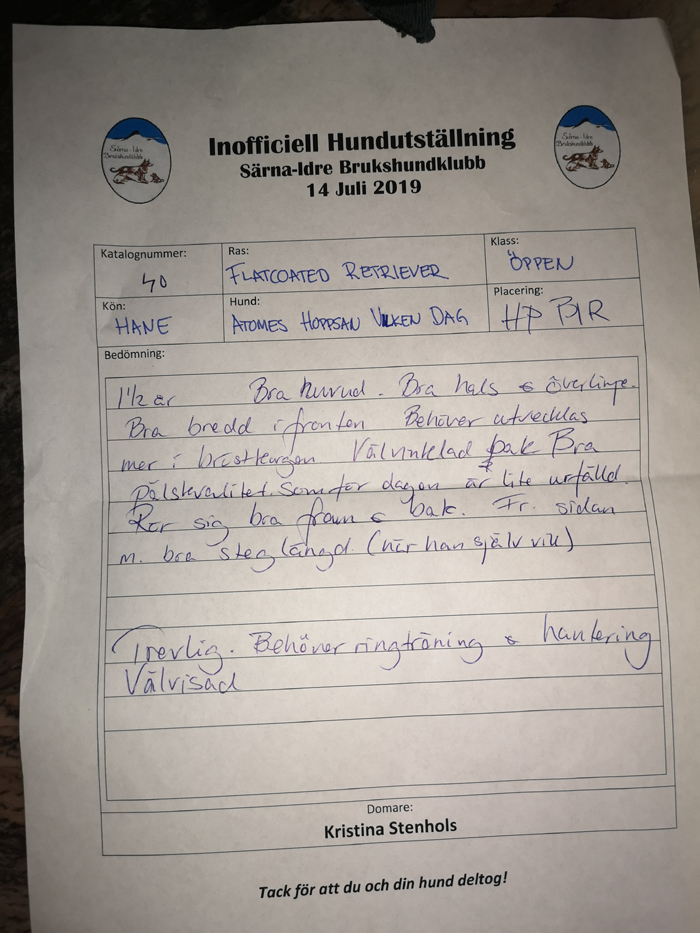 Inofficiell Hundutställning
Särna-Idre Brukshundklubb
14 Juli 2019
Särna-Idre
Brukshundklubb
Särna-Idre
Brukshundklubb
Katalognummer:
40
Ras:
FLATCOATED RETRIEVER
Klass:
ÖPPEN
Kön:
HANE
Hund:
ATOMES HOPPSAN VILKEN DAG
Placering:
HP BIR
Bedömning:
1½ år Bra huvud. Bra hals & överlinje.
Bra bredd i fronten Behöver utvecklas
mer i bröstkorgen Välvinklad bak Bra
pälskvalitet som för dagen är lite urfälld.
Rör sig bra fram & bak. Fr. sidan
m. bra steglängd. (när han själv vill)
Trevlig. Behöver ringträning & hantering
Välvisad
Domare:
Kristina Stenhols
Tack för att du och din hund deltog!